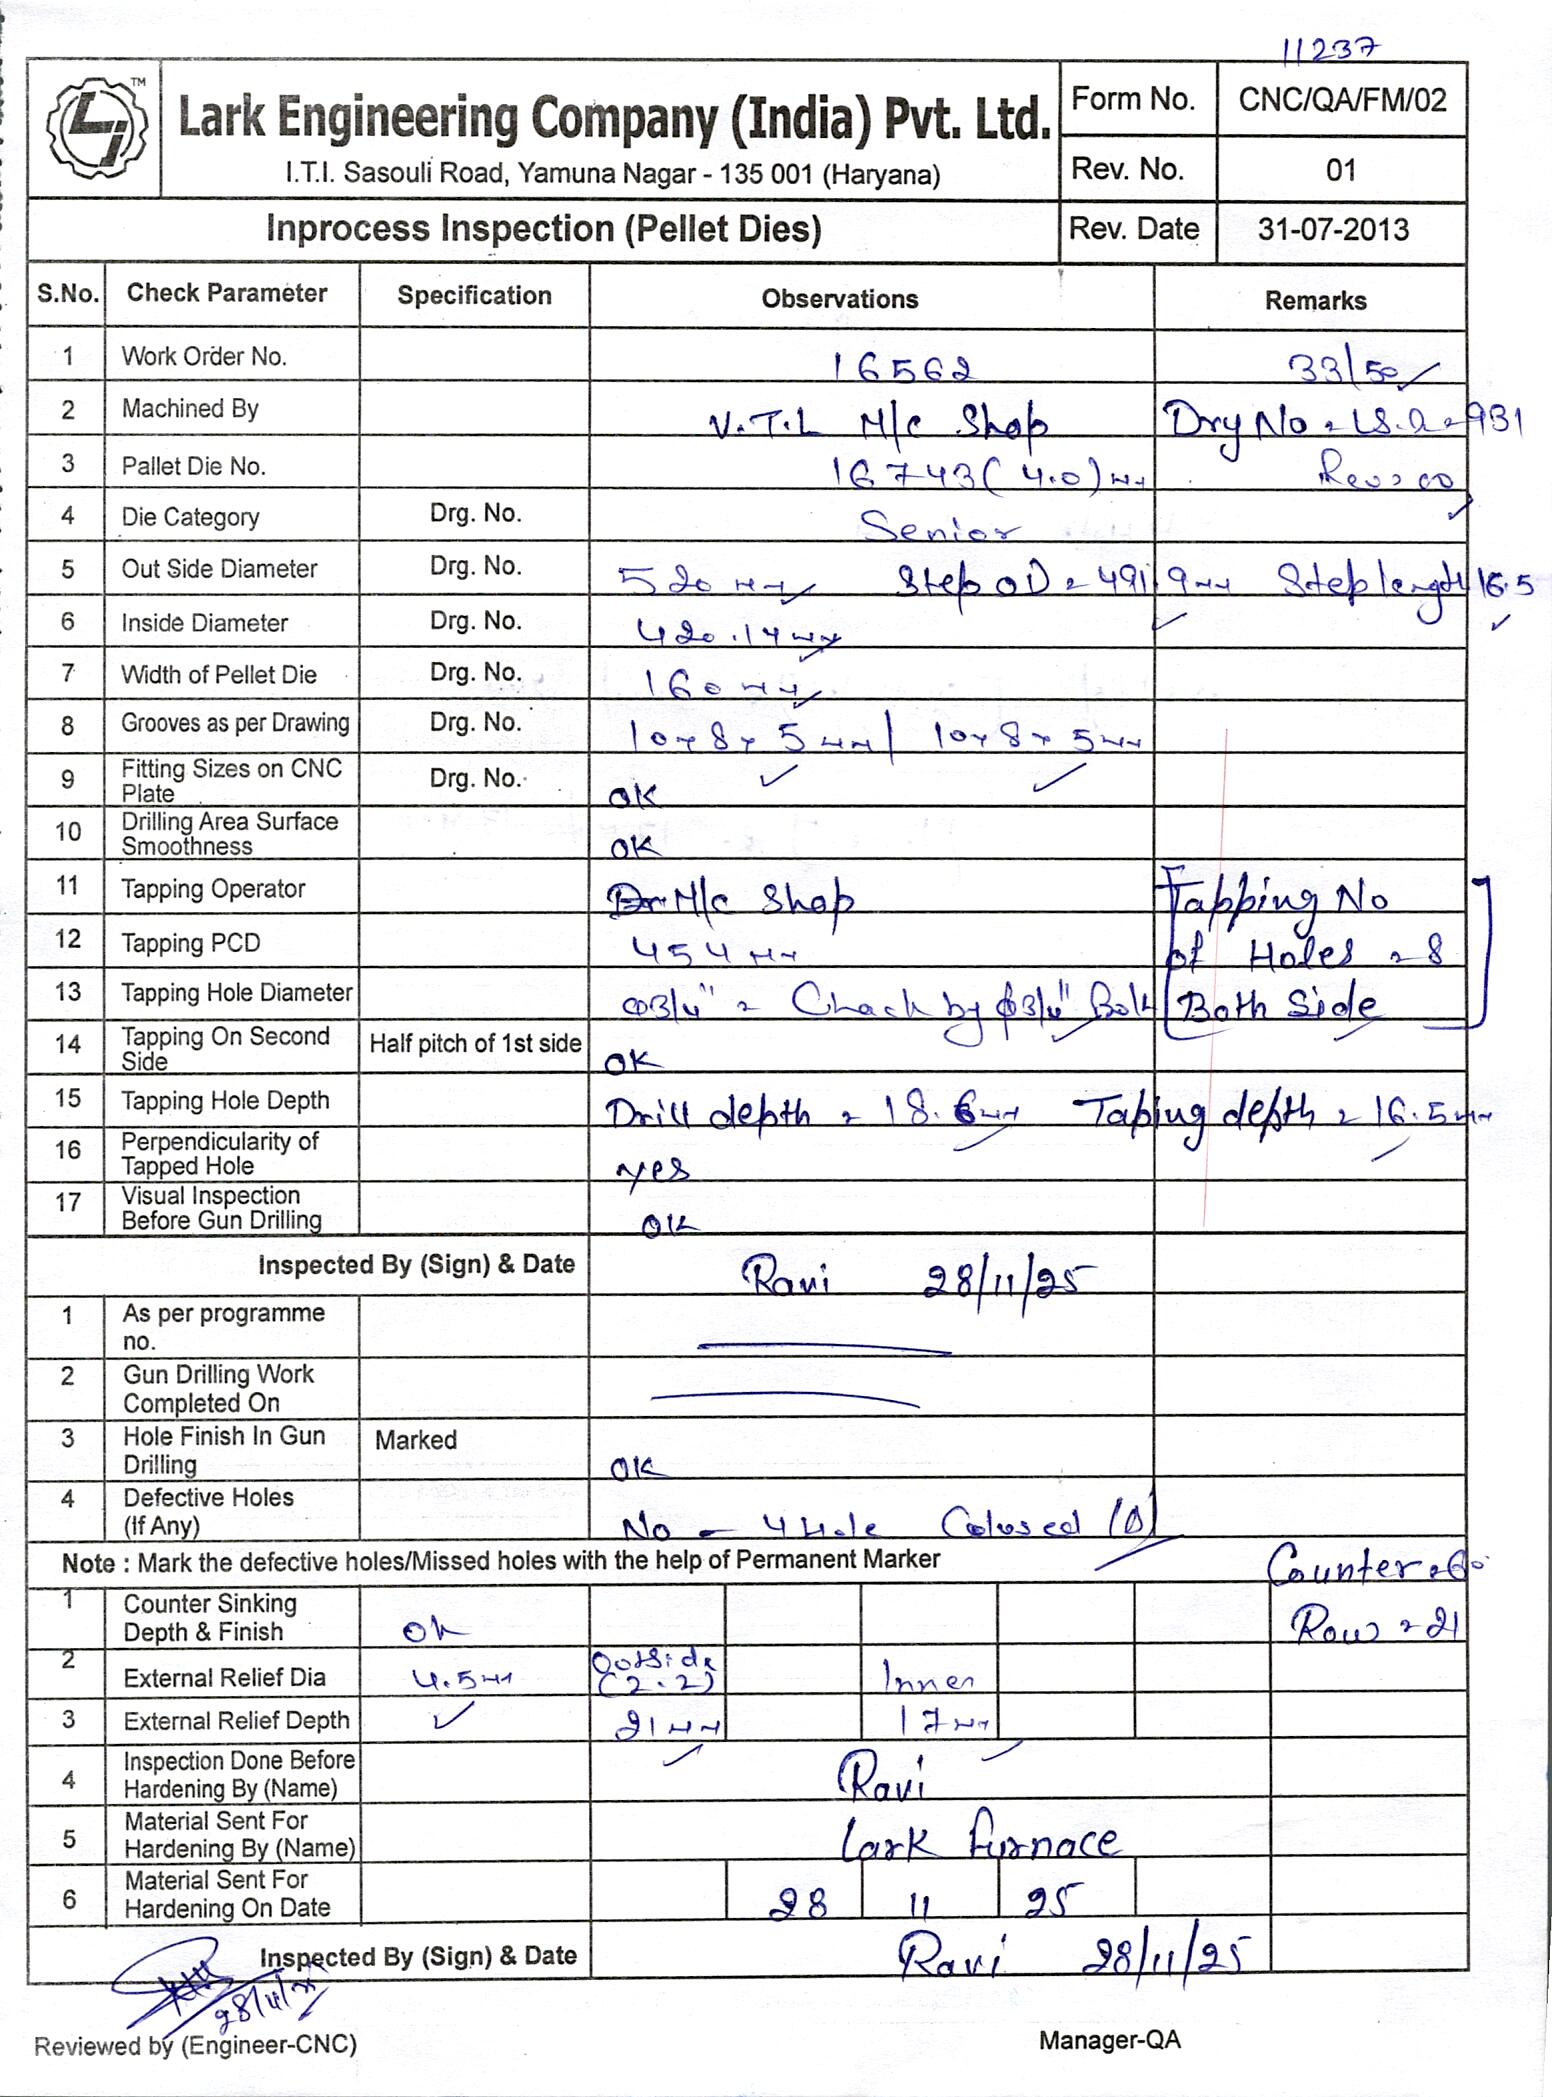 11237
TM
Lark Engineering Company (India) Pvt. Ltd.
I.T.I. Sasouli Road, Yamuna Nagar - 135 001 (Haryana)
Form No. CNC/QA/FM/02
Rev. No. 01
Inprocess Inspection (Pellet Dies)
Rev. Date 31-07-2013
S.No. Check Parameter Specification Observations Remarks
1 Work Order No. 16562 33/50
2 Machined By V.T.L M/c Shop Dry No = LS.2-931
3 Pallet Die No. 16743 (4.0) mm Rev = 00
4 Die Category Drg. No. Senior
5 Out Side Diameter Drg. No. 520 mm Step OD = 491.9 mm Step length 16.5
6 Inside Diameter Drg. No. 420.14 mm
7 Width of Pellet Die Drg. No. 160 mm
8 Grooves as per Drawing Drg. No. 10x8x5 mm / 10x8x5 mm
9 Fitting Sizes on CNC Plate Drg. No. OK
10 Drilling Area Surface Smoothness OK
11 Tapping Operator M/c Shop Tapping No
12 Tapping PCD 454 mm of Holes = 8
13 Tapping Hole Diameter Ø3/4" = Chack by Ø3/4" Bolt Both Side
14 Tapping On Second Side Half pitch of 1st side OK
15 Tapping Hole Depth Drill depth = 18.6 mm Taping depth = 16.5 mm
16 Perpendicularity of Tapped Hole yes
17 Visual Inspection Before Gun Drilling OK
Inspected By (Sign) & Date Ravi 28/11/25
1 As per programme no.
2 Gun Drilling Work Completed On
3 Hole Finish In Gun Drilling Marked OK
4 Defective Holes (If Any) No - 4 Hole Colosed
Note : Mark the defective holes/Missed holes with the help of Permanent Marker
Counter = 60
1 Counter Sinking Depth & Finish OK Row = 21
2 External Relief Dia 4.5 mm Outside (2.2) Inner
3 External Relief Depth 21 mm 17 mm
4 Inspection Done Before Hardening By (Name) Ravi
5 Material Sent For Hardening By (Name) Lark furnace
6 Material Sent For Hardening On Date 28 11 25
Inspected By (Sign) & Date Ravi 28/11/25
28/11/25
Reviewed by (Engineer-CNC) Manager-QA